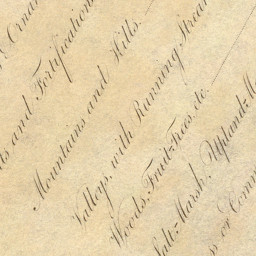 Orna
ts and Fortification
Mountains and Hills.
Valleys, with Running Strea
Woods, Fruit=Trees, &c.
Salt=Marsh, Upland=M
s or Comm